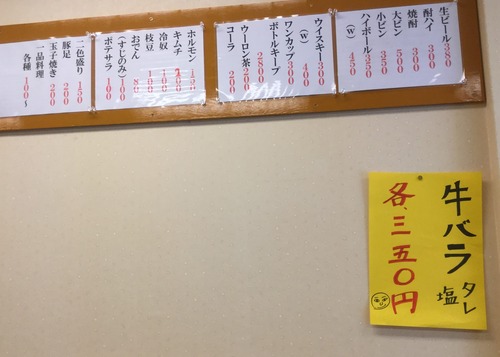 生ビール 380
酎ハイ 300
焼酎 300
大ビン 500
小ビン 350
ハイボール 350
(W) 450
ウイスキー 300
(W) 400
ワンカップ 300
ボトルキープ 2800
ウーロン茶 200
コーラ 200
ホルモン 150
キムチ
冷奴 100
枝豆 100
おでん 80
(すじのみ) 100
ポテサラ
二色盛り 150
豚足 200
玉子焼き 200
一品料理
各種 100〜
牛バラ タレ
塩
各、三五〇円